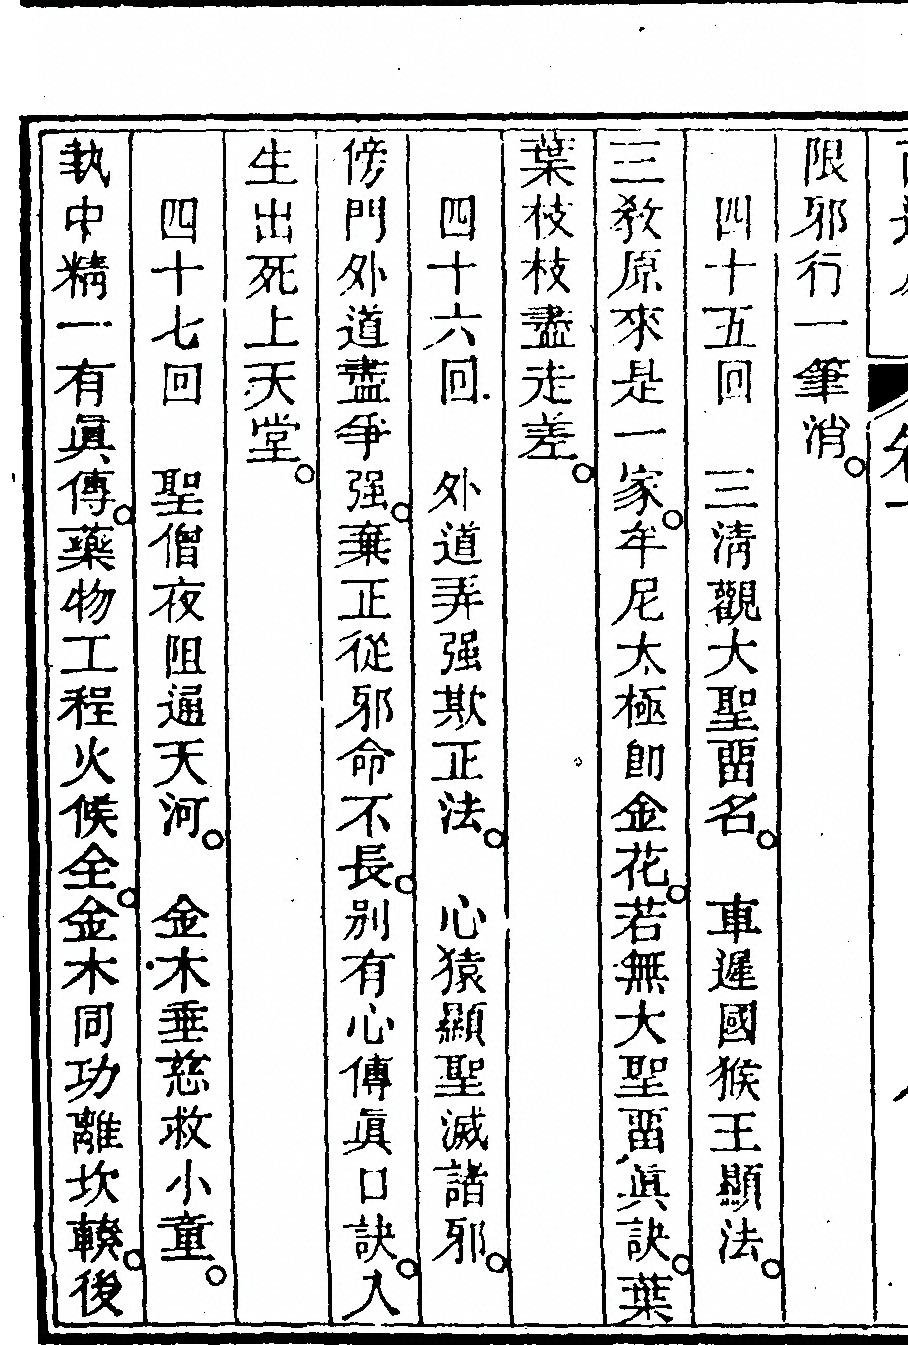 限邪行一筆消。
四十五回　三清觀大聖畱名。　車遲國猴王顯法。
三教原來是一家。牟尼太極卽金花。若無大聖畱眞訣。葉
葉枝枝盡走差。
四十六回　外道弄强欺正法。　心猿顯聖滅諸邪。
傍門外道盡爭强。棄正從邪命不長。别有心傳眞口訣。入
生出死上天堂。
四十七回　聖僧夜阻通天河。　金木垂慈救小童。
執中精一有眞傳。藥物工程火候全。金木同功離坎輳。後